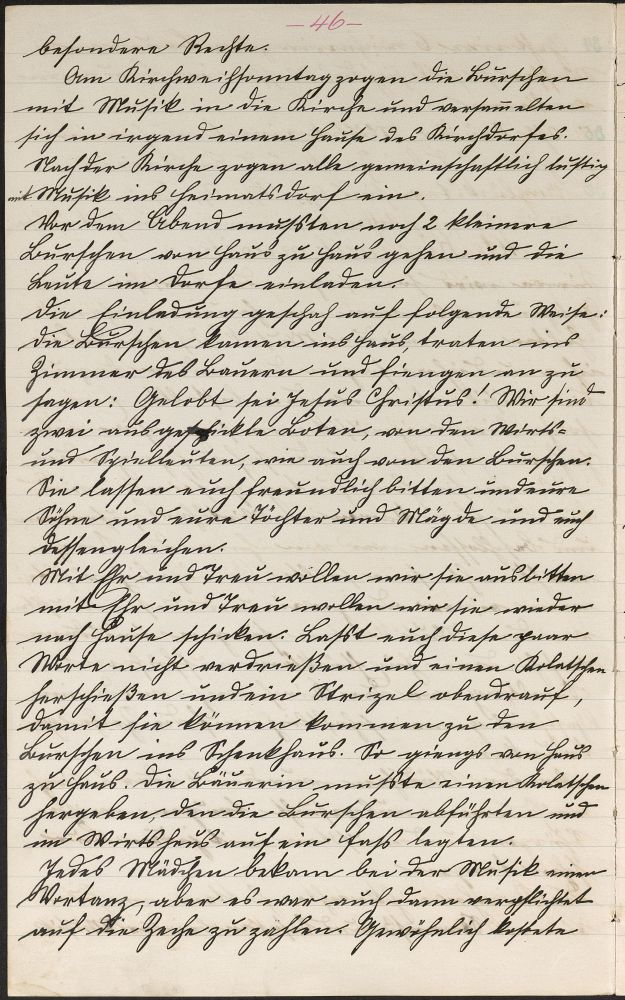 -46-
besondere Rechte.
Am Kirchweihsonntag zogen die Burschen
mit Musik in die Kirche und versam̅elten
sich in irgend einem Hause des Kirchdorfes.
Nach der Kirche zogen alle gemeinschaftlich lustig
mit Musik ins Heimatsdorf ein.
Vor dem Abend mussten noch 2 kleinere
Burschen von Haus zu Haus gehen und die
Leute im Dorfe einladen.
Die Einladung geschah auf folgende Weise:
Die Burschen kamen ins Haus, traten ins
Zimmer des Bauern und fiengen an zu
sagen: Gelobt sei Jesus Christus! Wir sind
zwei ausgeschickte Boten, von den Wirts-
und Spielleuten, wie auch von den Burschen.
Sie lassen euch freundlich bitten und eure
Söhne und eure Töchter und Mägde und euch
dessengleichen.
Mit Ehr und Treu wollen wir sie ausbitten
mit Ehr und Treu wollen wir sie wieder
nach Hause schicken. Lasst euch diese paar
Worte nicht verdrießen und einen Kolatschen
herschießen und ein Strizel obendrauf,
damit sie können kommen zu den
Burschen ins Schenkhaus. So giengs von Haus
zu Haus. Die Bäuerin musste einen Kolatschen
hergeben, den die Burschen abführten und
im Wirtshaus auf ein Fass legten.
Jedes Mädchen bekam bei der Musik einen
Vortanz, aber es war auch dann verpflichtet
auf die Zeche zu zahlen. Gewöhnlich kostete